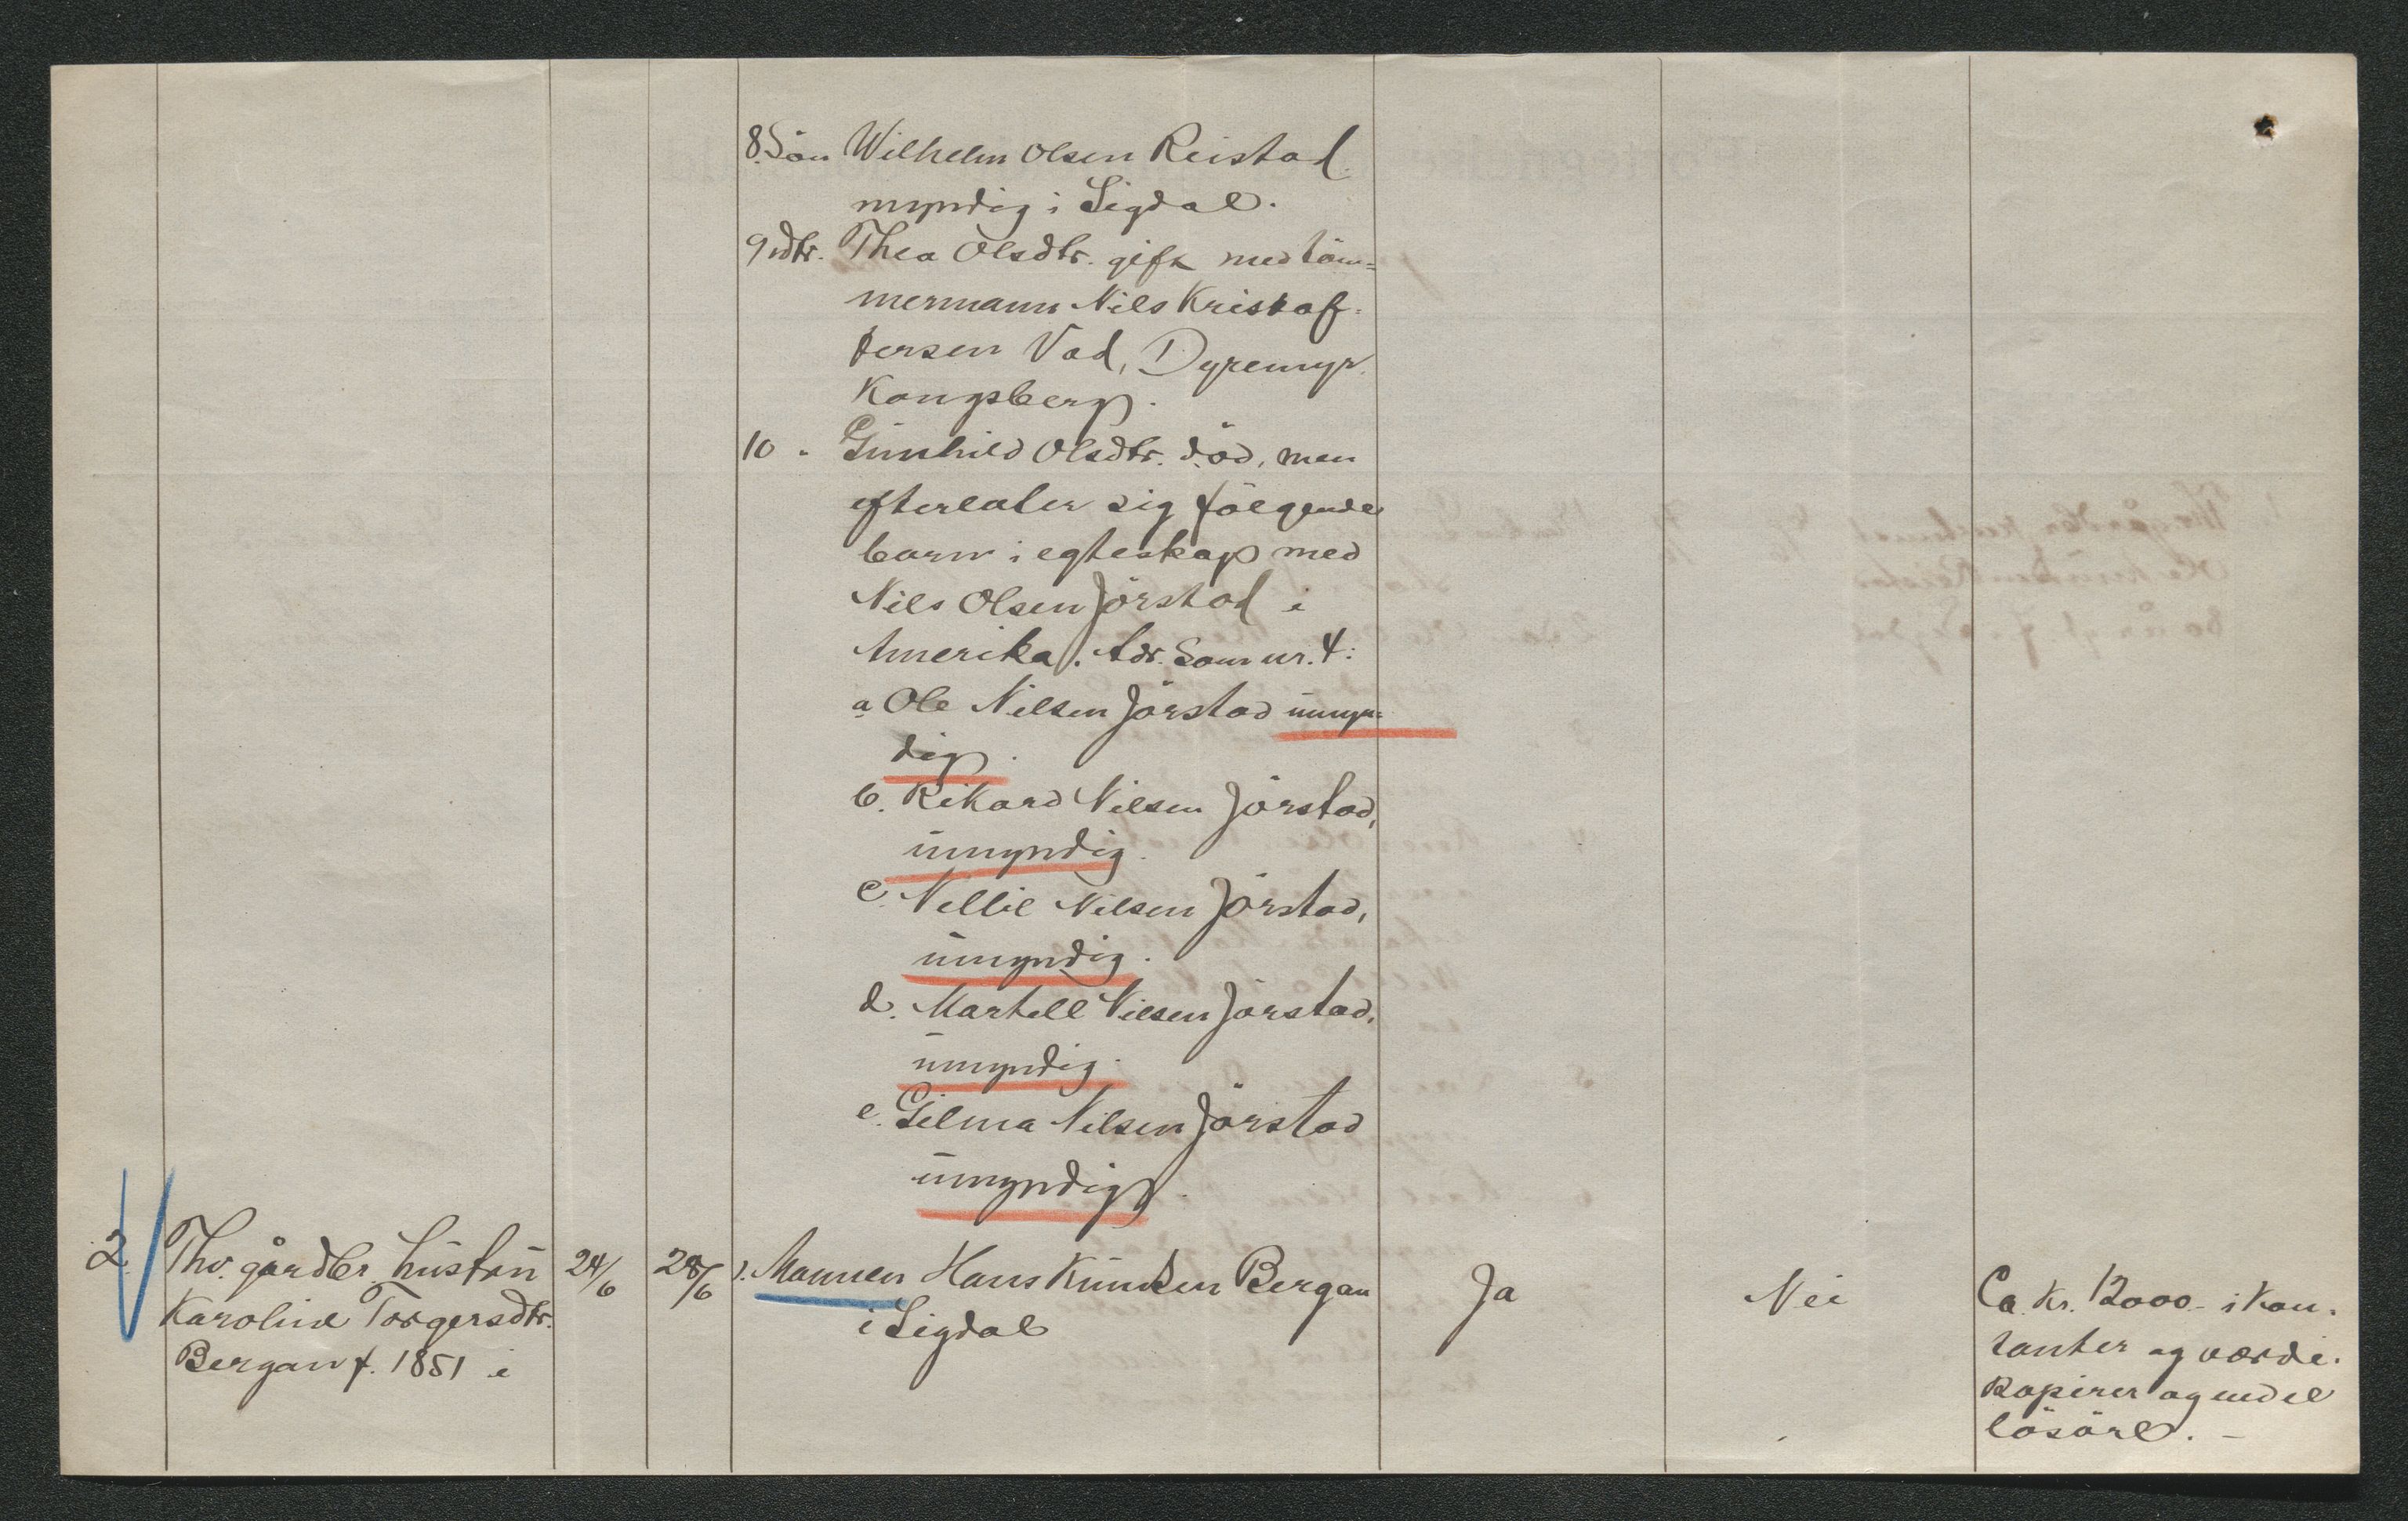 8. Sön Wilhelm Olsen Reistad
myndig i Sigdal.
9 dtr. Thea Olsdtr. gift med töm=
mermann Nils Kristof-
fersen Vad, Dyremyr
Kongsberg.
10 " Gunhild Olsdtr. död, men
efterlater sig fölgende
barn i egteskap med
Nils Olsen Jörstad i
Amerika. Adr. Som nr. 4:
a Ole Nilsen Jörstad umyn=
dig.
b. Rikard Nilsen Jörstad,
umyndig.
c. Nellie Nilsen Jörstad,
umyndig.
d. Martell Nilsen Jörstad,
umyndig.
e. Gilma Nilsen Jörstad
umyndig.
2. Thv. gårdbr. hustru 24/6 28/6 1. Mannen Hans Knudsen Bergan Ja Nei Ca. Kr. 12000.- i kon-
Karoline Torgersdtr. i Sigdal tanter og værdi-
Bergan f. 1851 i papirer og endel
lösöre. -